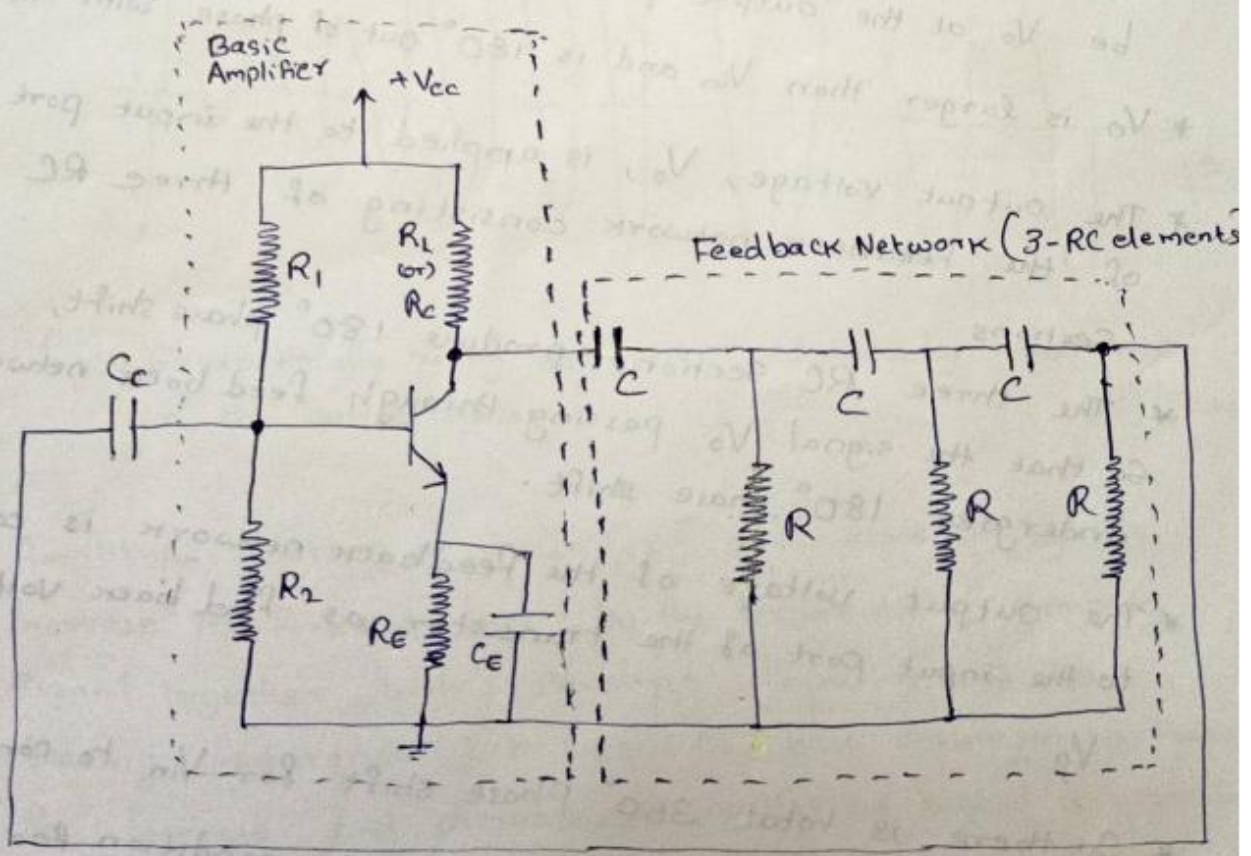 Basic
Amplifier
+Vcc
R1
RL
(or)
Rc
Feedback Network (3-RC elements
Cc
C
C
C
R2
RE
CE
R
R
R